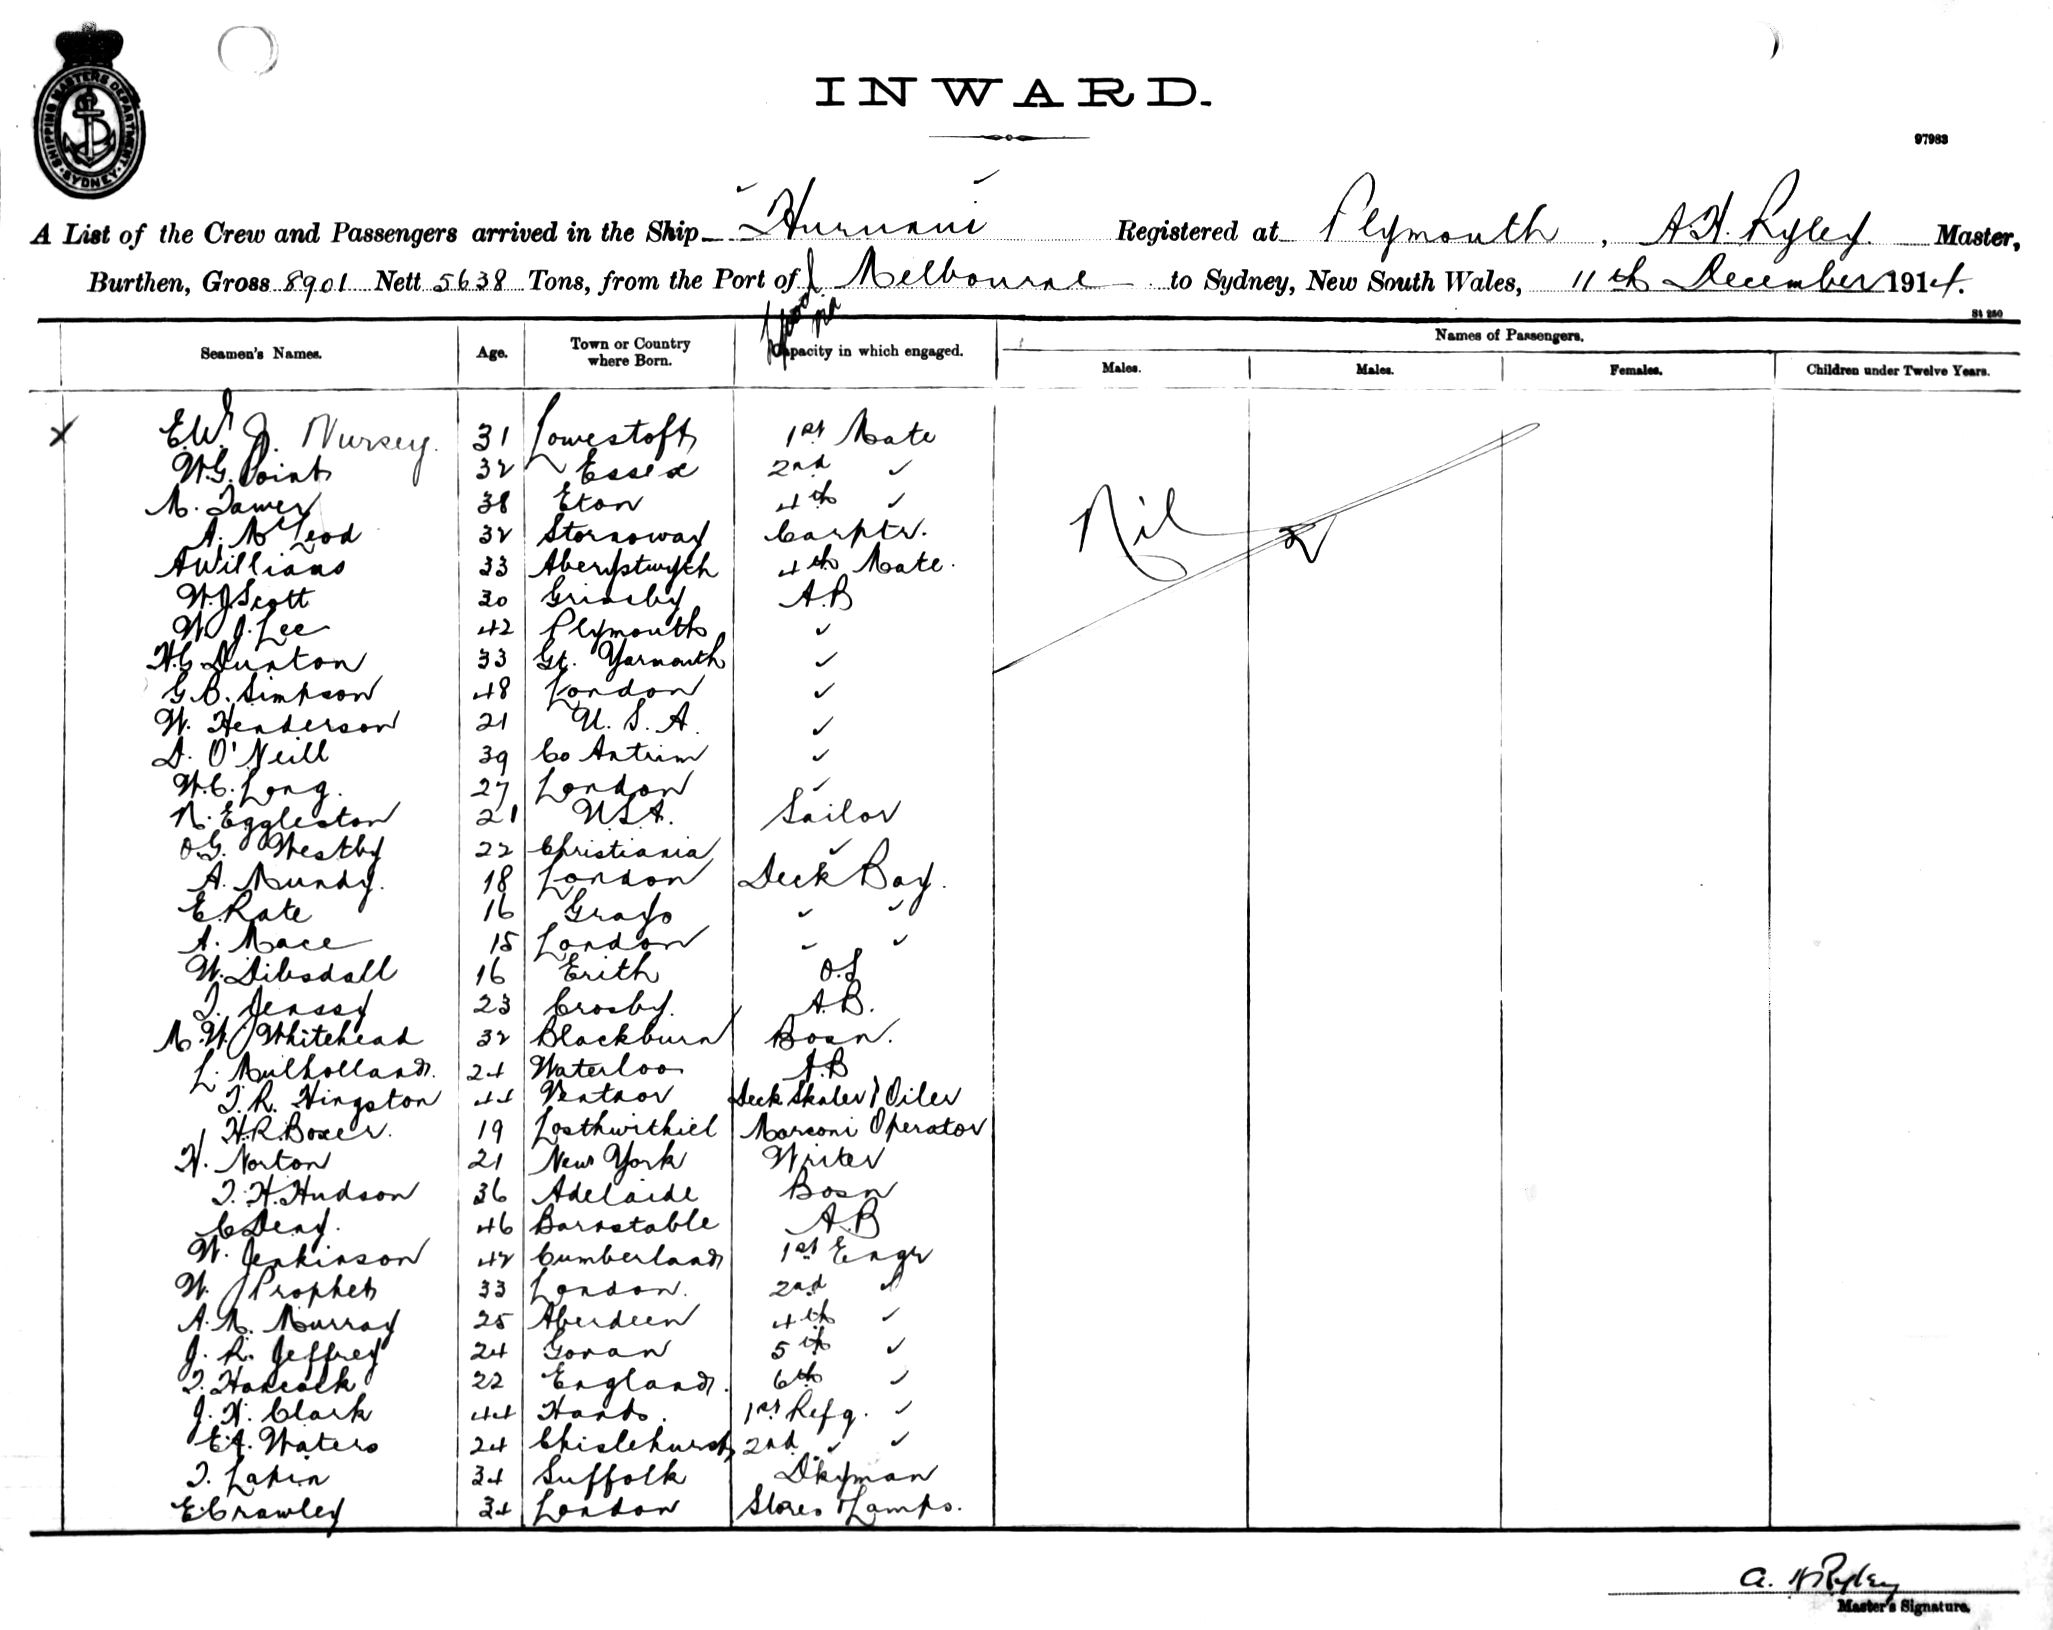 SHIPPING MASTERS DEPARTMENT SYDNEY
INWARD.
97983
A List of the Crew and Passengers arrived in the Ship Hurunui Registered at Plymouth, A.H. Ryley. Master,
Burthen, Gross 8901 Nett 5638 Tons, from the Port of Melbourne to Sydney, New South Wales, 11th December 1914.
St 250
Seamen's Names. Age. Town or Country where Born. Capacity in which engaged. Names of Passengers.
Males. Males. Females. Children under Twelve Years.
X E.W. J. Nursey. 31 Lowestoft 1st Mate
W.G. Point 32 Essex 2nd ✓
M. Tawer 38 Eton 4th ✓
Nil
A. McLeod 32 Stornoway Carptr.
A Williams 33 Aberystwyth 4th Mate.
W.J Scott 30 Grimsby A.B
W. J. Lee 42 Plymouth ✓
H.G Dunton 33 Gt. Yarmouth ✓
G.B. Simpson 48 London ✓
W. Henderson 21 U.S.A. ✓
D. O'Neill 39 Co Antrim ✓
W.C. Long. 27 London ✓
N. Eggleston 21 USA. Sailor
O.G. Westby 22 Christiania ✓
A. Mundy. 18 London Deck Boy.
E. Rate 16 Grays ✓ ✓
A. Mace 15 London ✓ ✓
W. Dibsdall 16 Erith O.S
J. Jenssy 23 Crosby. A.B.
M.W. Whitehead 32 Blackburn Bosn.
L. Mulholland. 24 Waterloo A.B
T.R. Hingston 44 Ventnor Deck Skaler & Oiler
H.R. Boxer. 19 Losthwithiel Marconi Operator
H. Norton 21 New York Writer
T.H. Hudson 36 Adelaide Bosn
C Deay. 46 Barnstable A.B
W. Jenkinson 42 Cumberland 1st Engr
W. Prophet 33 London. 2nd ✓
A.M. Murray 25 Aberdeen 4th ✓
J. R. Jeffrey 24 Govan 5th ✓
T. Hancock 22 England. 6th ✓
J. H. Clark 44 Hants. 1st Refg. ✓
E.A. Waters 24 Chislehurst 2nd ✓ ✓
T. Lapin 34 Suffolk Dkyman
E. Crawley 34 London Stores & Lamps.
A. H Ryley
Master's Signature.